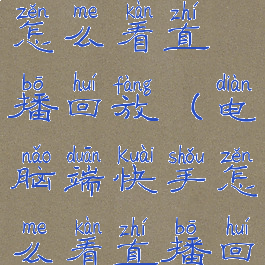 zěn me kàn zhí
怎么看直
bō huí fàng diàn
播回放（电
nǎo duān kuài shǒu zěn
脑端快手怎
me kàn zhí bō huí
么看直播回